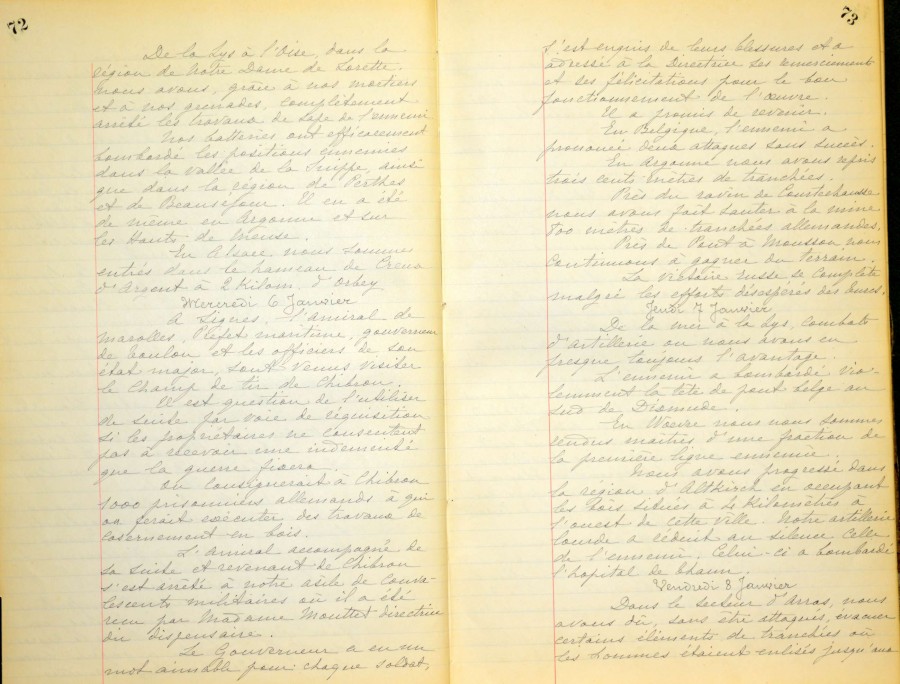 72
De la Lys à l'Oise, dans la
région de Notre Dame de Lorette.
nous avons, grâce à nos mortiers
et à nos grenades, complètement
arrêté les travaux de sape de l'ennemi
Nos batteries ont efficacement
bombardé les positions ennemies
dans la vallée de la Suippe, ainsi
que dans la région de Perthes
et de Beauséjour. Il en a été
de même en Argonne et sur
les Hauts de Meuse.
En Alsace, nous sommes
entrés dans le hameau de Creux
d'Argent à 2 Kilom. d'Orbey
Mercredi 6 Janvier
A Signes, l'amiral de
Marolles, Préfet maritime, gouverneur
de Toulon et les officiers de son
état major, sont venus visiter
le Champ de tir de Chibron.
Il est question de l'utiliser
de suite par voie de réquisition
si les propriétaires ne consentent
pas à recevoir une indemnité
que la guerre fixera.
On consignerait à Chibron
1000 prisonniers allemands à qui
on ferait exécuter des travaux de
casernement en bois.
L'amiral accompagné de
sa suite et revenant de Chibron
s'est arrêté à notre asile de conva-
lescents militaires où il a été
reçu par Madame Mouttet directrice
du dispensaire.
Le Gouverneur a eu un
mot aimable pour chaque soldat,
73
s'est enquis de leurs blessures et a
adressé à la Directrice ses remerciements
et ses félicitations pour le bon
fonctionnement de l'œuvre.
Il a promis de revenir.
En Belgique, l'ennemi a
prononcé deux attaques sans succès.
En Argonne nous avons repris
trois cents mètres de tranchées.
Près du ravin de Courtechausse
nous avons fait sauter à la mine
800 mètres de tranchées allemandes.
Près de Pont à Mousson nous
continuons à gagner du terrain.
La victoire russe se complète
malgré les efforts désespérés des turcs.
Jeudi 7 Janvier
De la mer à la Lys, combats
d'artillerie où nous avons eu
presque toujours l'avantage.
L'ennemi a bombardé vio-
lemment la tête de pont belge au
sud de Dixmude.
En Woëvre nous nous sommes
rendus maîtres d'une fraction de
la première ligne ennemie.
Nous avons progressé dans
la région d'Altkirch en occupant
les bois situés à 4 Kilomètres à
l'ouest de cette ville. Notre artillerie
lourde a réduit au silence celle
de l'ennemi. Celui-ci a bombardé
l'hopital de Thann.
Vendredi 8 Janvier
Dans le secteur d'Arras, nous
avons dû, sans être attaqués, évacuer
certains éléments de tranchées où
les hommes étaient enlisés jusqu'aux